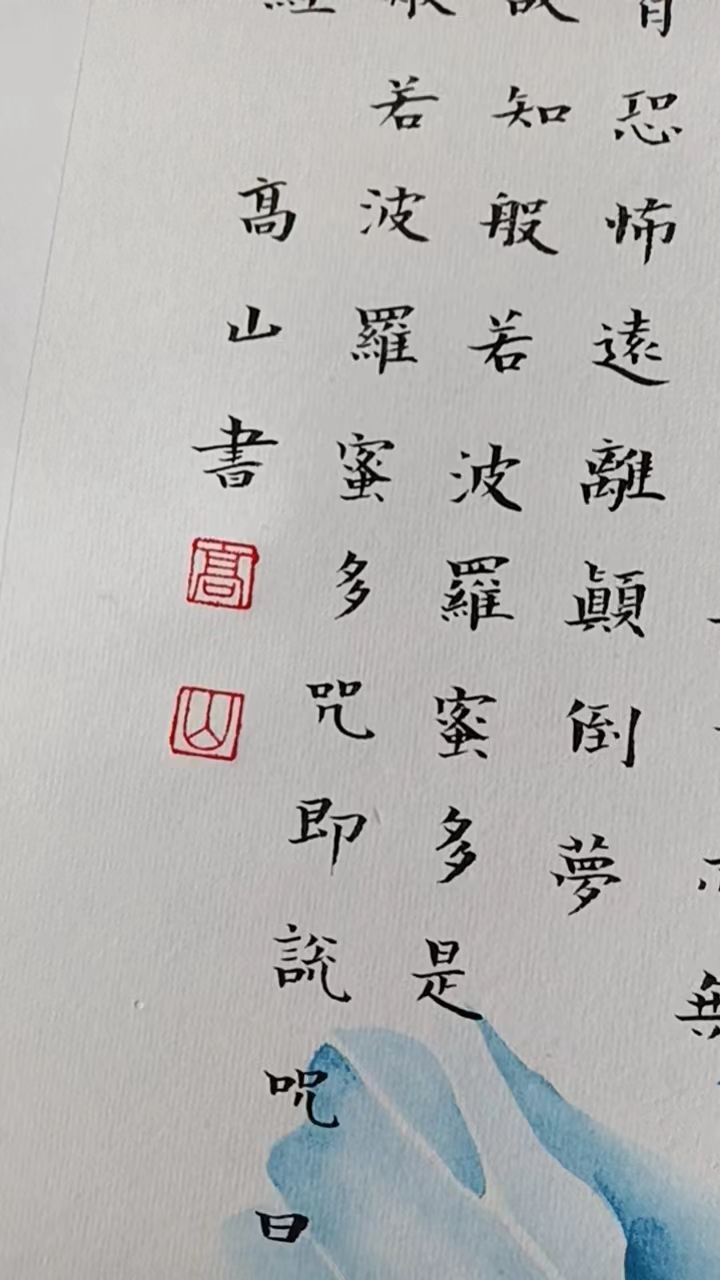 無
有恐怖遠離顛倒夢
故知般若波羅蜜多是
般若波羅蜜多咒即說呪曰
經
高山書
高
山